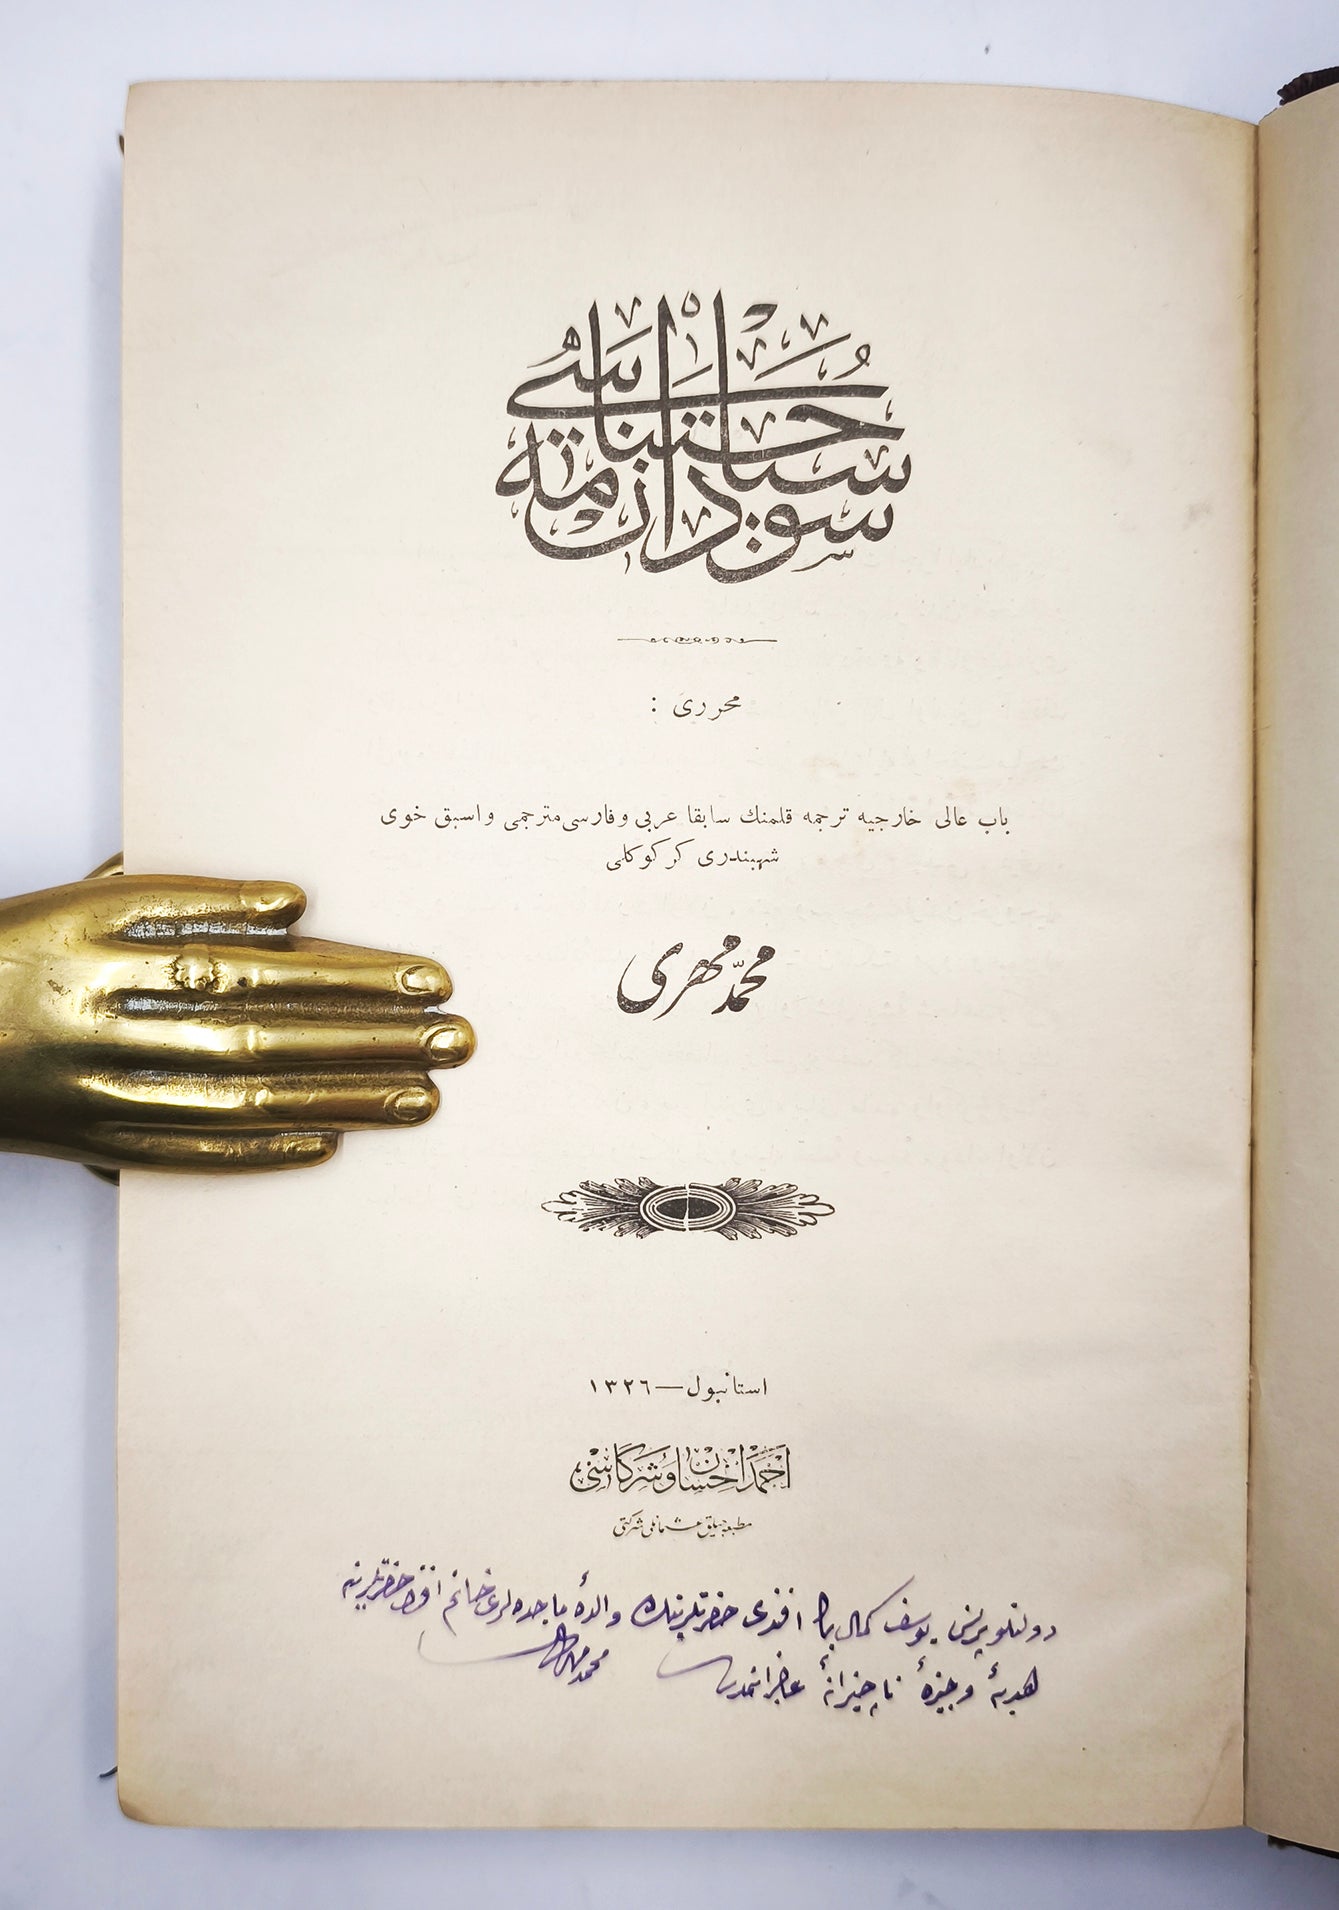 سودان سیاحتنامه‌سی
محرری :
باب عالی خارجیه ترجمه قلمنك سابقا عربی و فارسی مترجمی و اسبق خوی
شهبندری كركوكلی
محمّد مهری
استانبول — ١٣٢٦
احمد احسان و شركاسی
مطبعه‌جیلق عثمانلی شركتی
دولتلو پرنس یوسف كمال پاشا افندی حضرتلرینك والدهٔ ماجده‌لری خانم افندی حضرتلرینه
هدیهٔ وجیزهٔ ناچیزانهٔ عاجزانمدر
محمد مهری